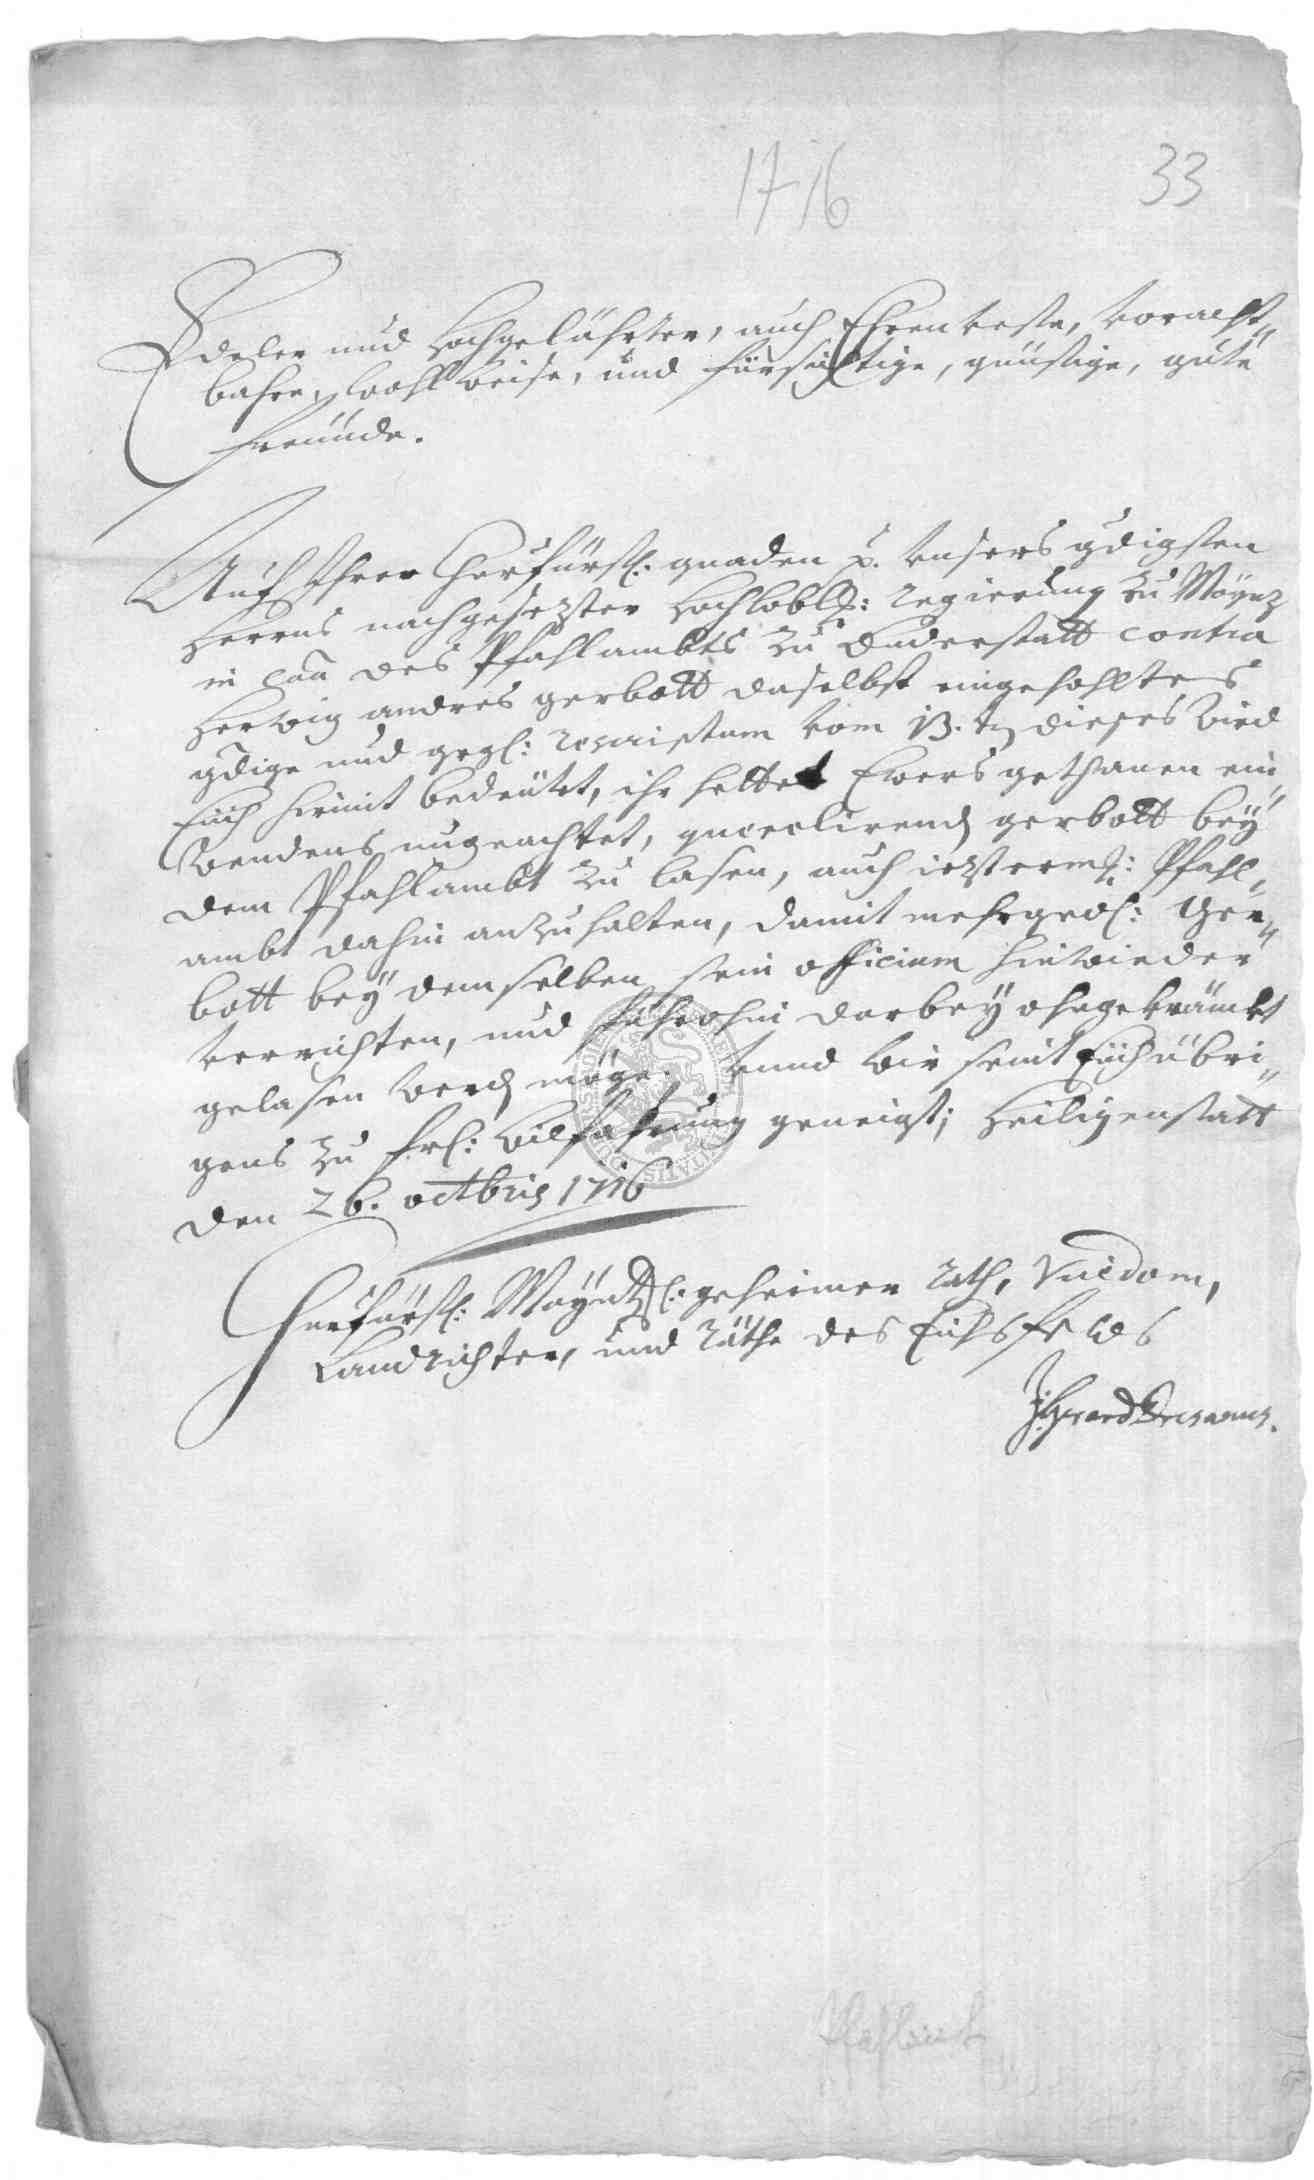 1716
33
Edeler und Hochgelährter, auch Ehrenveste, voracht„
bahre, wohl weise, und fürsichtige, günstige, gute
freunde.
Auf Ihrer Churfürstl: gnaden p. unsers gdigsten
Herrns nachgesezter Hochlobl: Regierung zu Mäynz
in caa des Pfahlambts zu Duderstatt contra
Herwig andres gerbott daselbst eingehohltes
gdige und grgl: rescriptum vom 13. dieses wird
Euch hirmit bedeutet, ihr hettet Ewers gethanen ein„
wendens ungeachtet, querelirend gerbott bey
dem Pfahlambt zu lasen, auch iezterm: Pfahl„
ambt dahin anzuhalten, damit mehrged: Ger„
bott bey demselben sein officium hinwieder
verrichten, und führohin darbey ohngekränckt
gelasen werd möge. Unnd wir seint Euch übri„
gens zu frl: willfahrung geneigt; Heiligenstatt
den 26. octbris 1716
Churfürstl: Mäyntzl: geheimer Rath, Vicedom,
Landrichter, und Räthe des Eichsfelds
Pfahlambt